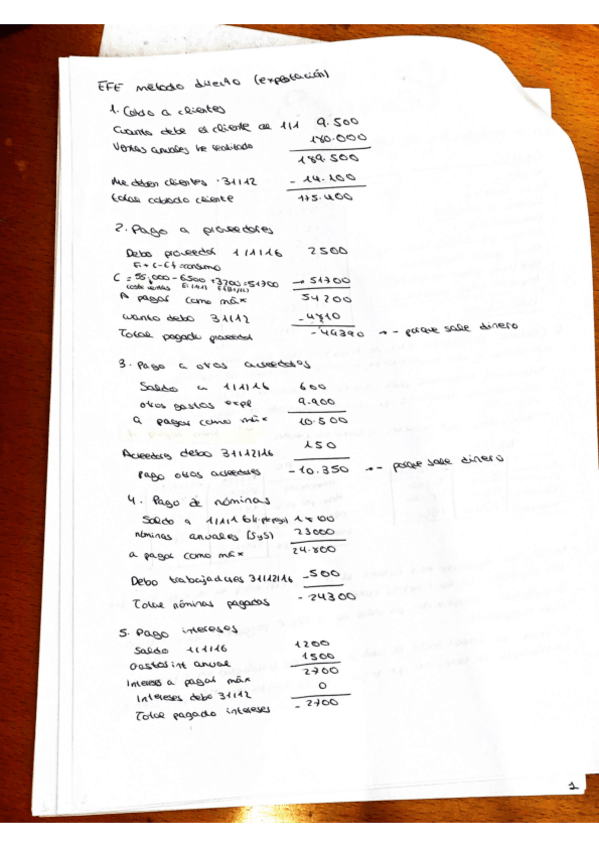 EFE método directo (explotación)
1. Cobro a clientes
Cuanto debe el cliente a 1/1 9.500
Ventas anuales he realizado 180.000
189.500
Me deben clientes 31/12 - 14.100
Total cobrado cliente 175.400
2. Pago a proveedores
Debo proveedor 1/1/16 2500
Ei + C - Ef = consumo
C = 55.000 - 6500 + 3200 = 51700 → 51700
coste ventas Ei (1/1) Ef (31/12)
A pagar como máx 54200
cuanto debo 31/12 - 4710
Total pagado proveedor - 49390 → - porque sale dinero
3. Pago a otros acreedores
Saldo a 1/1/16 600
otros gastos expl 9.900
a pagar como máx 10.500
Acreedores debo 31/12/16 150
Pago otros acreedores - 10.350 → - porque sale dinero
4. Pago de nóminas
Saldo a 1/1/16 1800
nóminas anuales (SyS) 23000
a pagar como máx 24.800
Debo trabajadores 31/12/16 - 500
Total nóminas pagadas - 24300
5. Pago intereses
Saldo 1/1/16 1200
Gastos int anual 1500
Intereses a pagar máx 2700
Intereses debo 31/12 0
Total pagado intereses - 2700
1